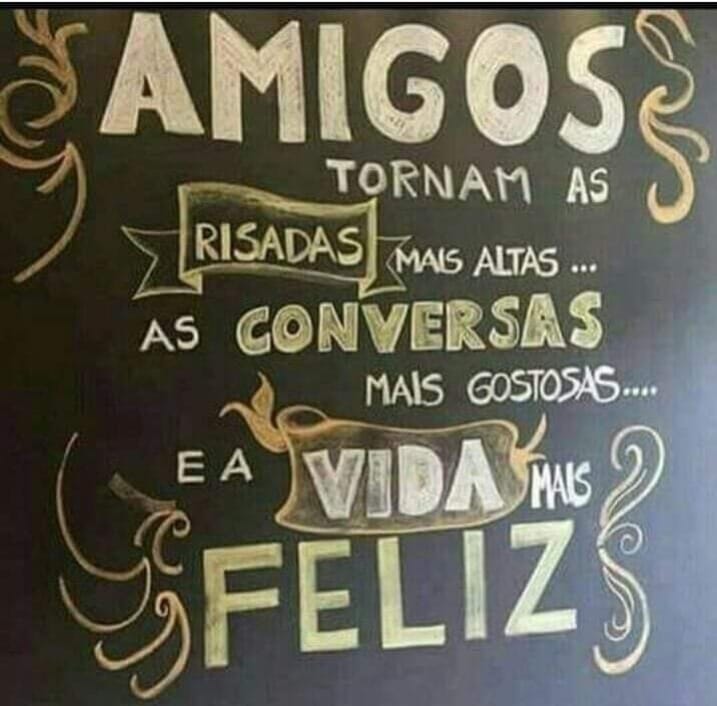 AMIGOS
TORNAM AS
RISADAS MAIS ALTAS ...
AS CONVERSAS
MAIS GOSTOSAS....
E A VIDA MAIS
FELIZ